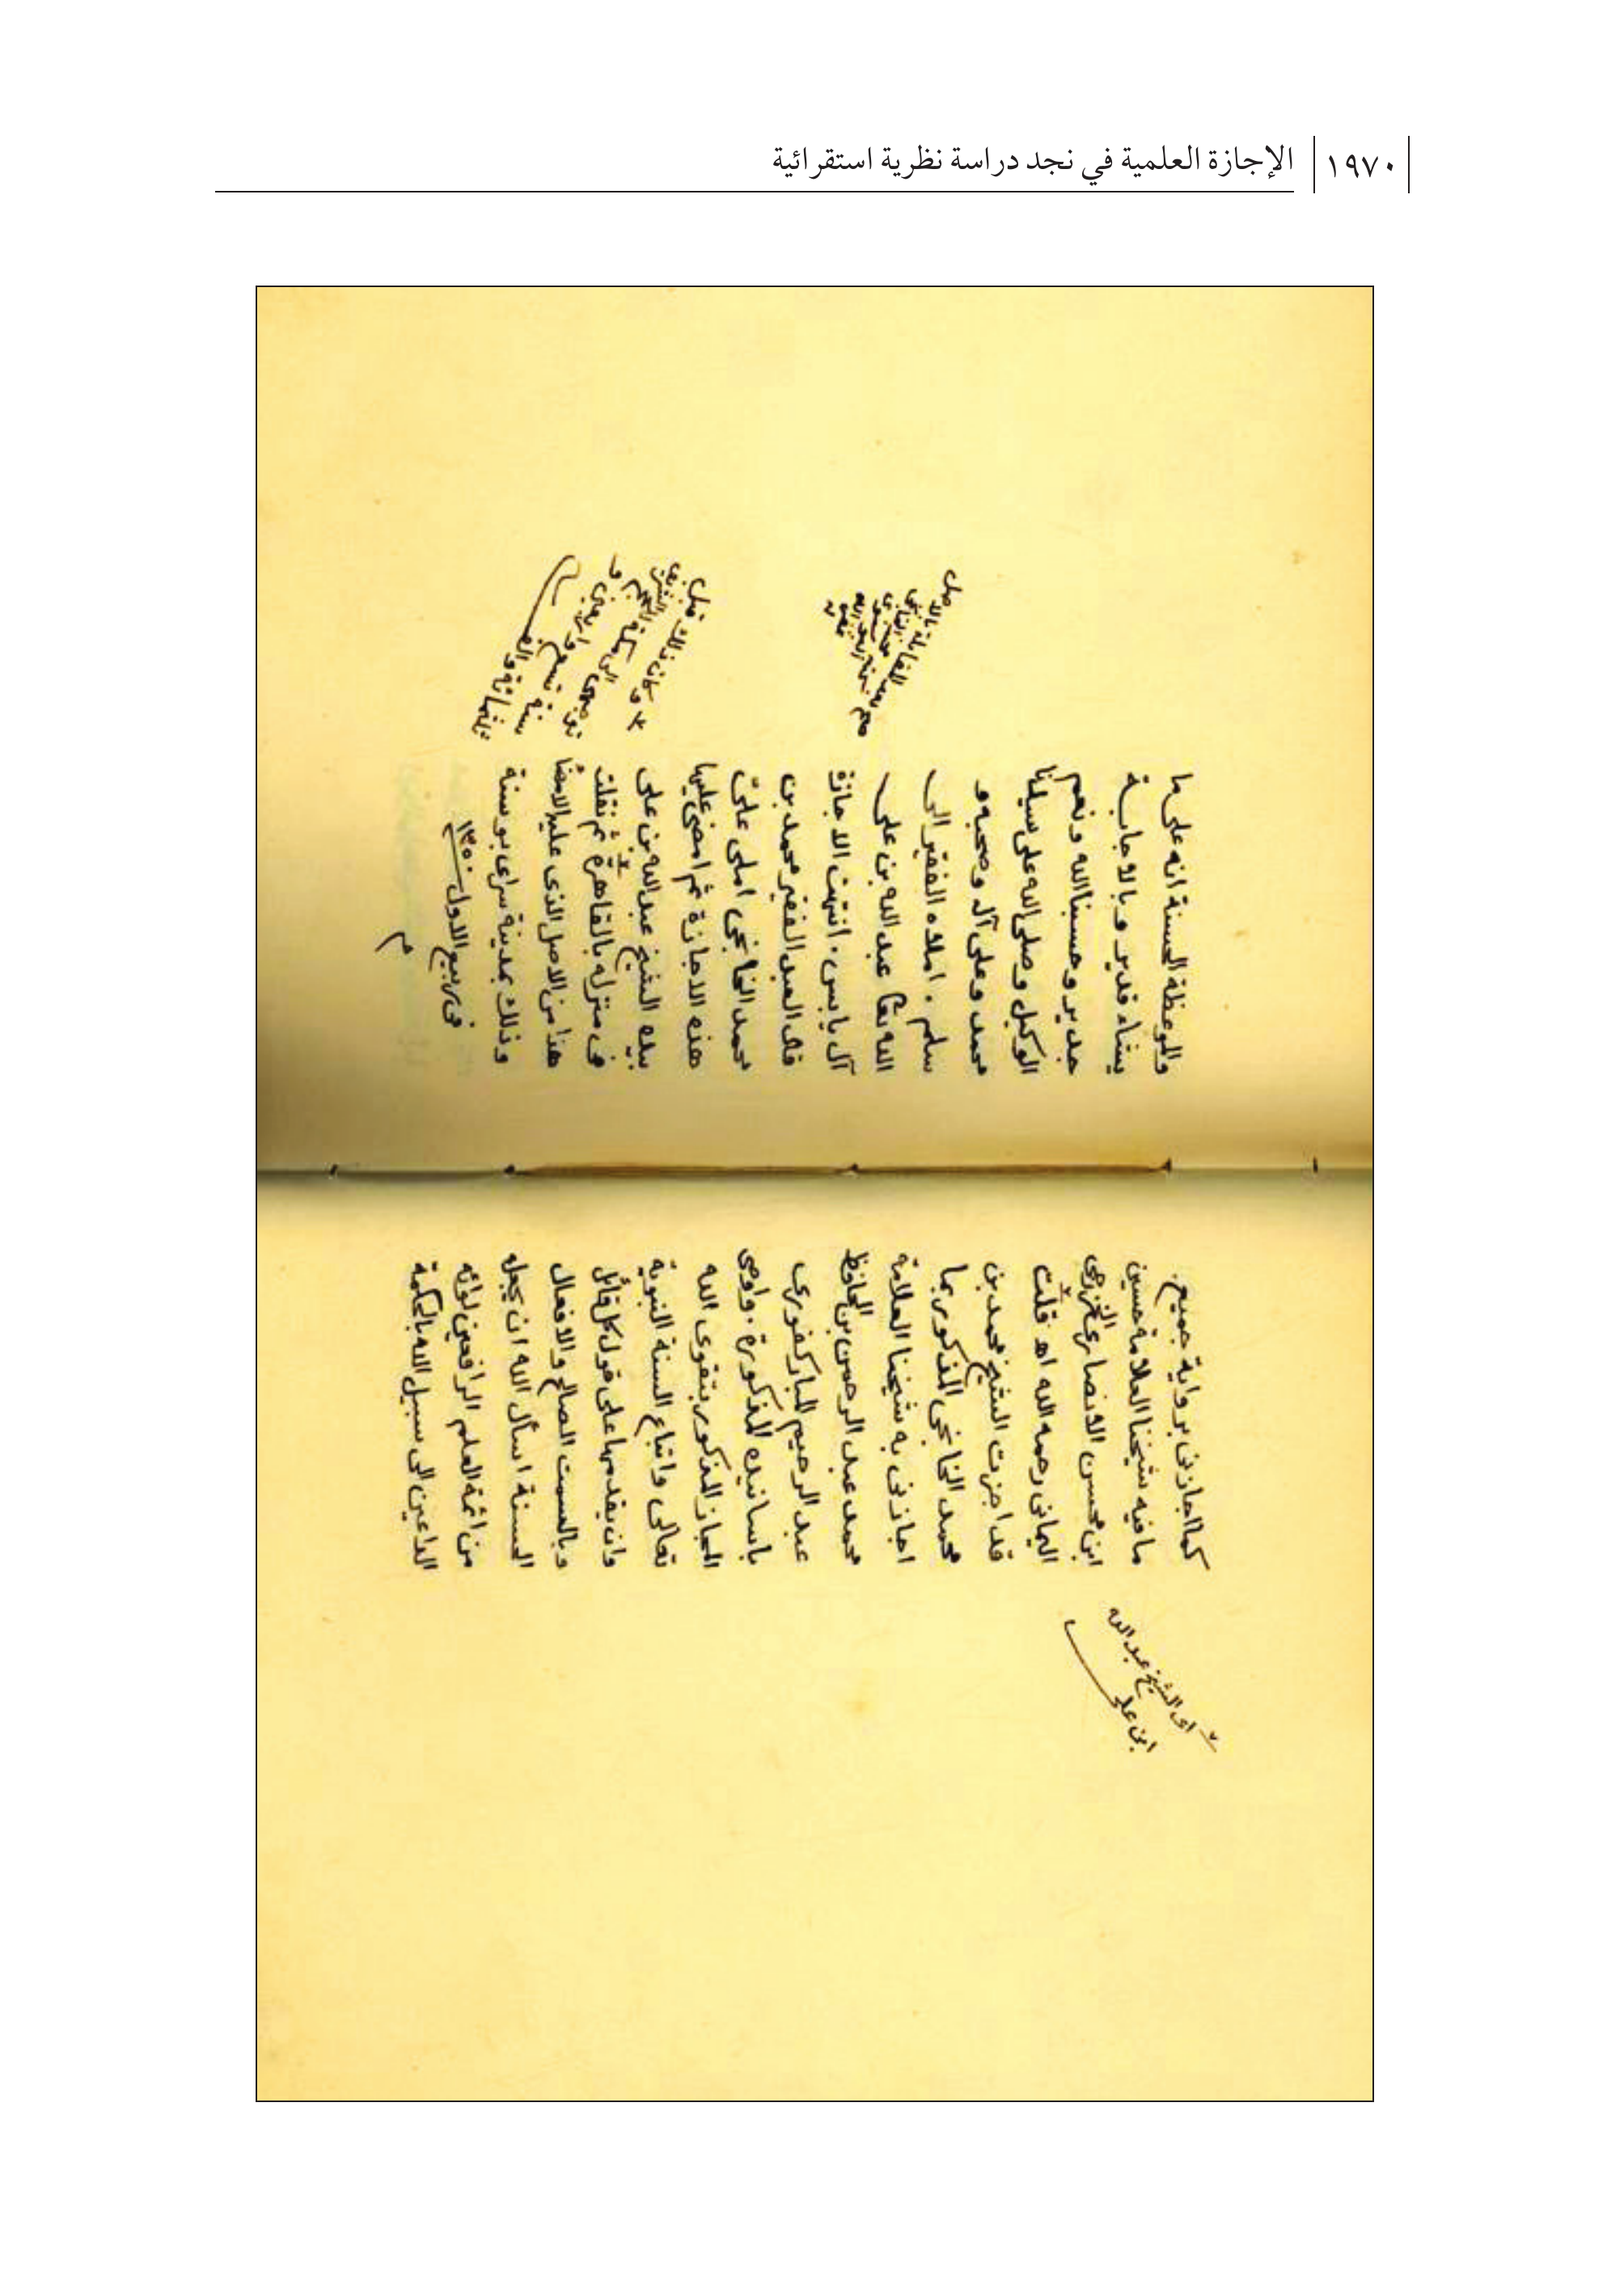 ١٩٧٠ الإجازة العلمية في نجد دراسة نظرية استقرائية
كما اجازنى برواية جميع
ما فيه شيخنا العلامة حسين
ابن محسن الانصارى الخزرجى
اليمانى رحمه الله اه قلت
قد اجزت الشيخ محمد بن
محمد الخانجى المذكور بما
اجازنى به شيخنا العلامة
محمد عبد الرحمن بن الحافظ
عبد الرحيم المباركفورى
باسانيده المذكورة . واوصى
المجاز المذكور بتقوى الله
تعالى واتباع السنة النبوية
وان يقدمها على قول كل قائل
وبالسمت الصالح والافعال
الحسنة اسأل الله ان يجعله
من ائمة العلم الرافعين لوائه
الداعين الى سبيل الله بالحكمة
اى الشيخ عبد الله
ابن على
والموعظة الحسنة انه على ما
يشاء قدير وبالاجابة
جدير وحسبنا الله ونعم
الوكيل وصلى الله على سيدنا
محمد وعلى آله وصحبه و
سلم . املاه الفقير الى
الله تعالى عبد الله بن على
آل يابس . انتهت الاجازة
قال العبد الفقير محمد بن
محمد الخانجى املى علىّ
هذه الاجازة ثم امضى عليها
بيده الشيخ عبد الله بن على
فى منزله بالقاهرة ثم نقلت
هذا من الاصل الذى عليه الامضاء
وذلك بمدينة سراى بوسنة
فى ربيع الاول ١٣٥٠
م
صح بعد المقابلة بالاصل
وكان ذلك قبل
توجهى الى مكة
سنة تسع واربعين
ثلثمائة والف